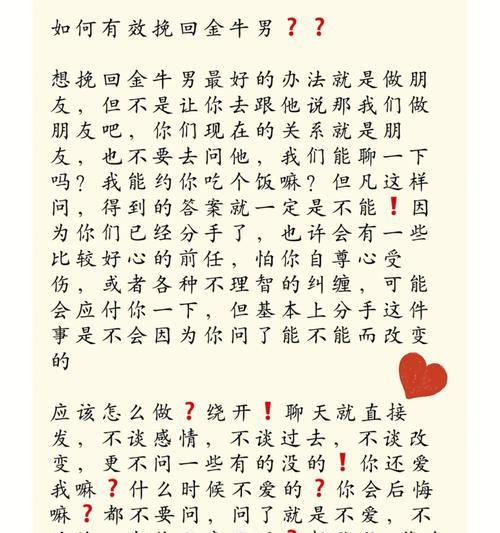 如何有效挽回金牛男❓❓
想挽回金牛男最好的办法就是做朋
友，但不是让你去跟他说那我们做
朋友吧，你们现在的关系就是朋
友，也不要去问他，我们能聊一下
吗？我能约你吃个饭嘛？但凡这样
问，得到的答案就一定是不能❗因
为你们已经分手了，也许会有一些
比较好心的前任，怕你自尊心受
伤，或者各种不理智的纠缠，可能
会应付你一下，但基本上分手这件
事是不会因为你问了能不能而改变
的
应该怎么做❓绕开❗聊天就直接
发，不谈感情，不谈过去，不谈改
变，更不问一些有的没的❗你还爱
我嘛❓什么时候不爱的❓你会后悔
嘛❓都不要问，问了就是不爱，不